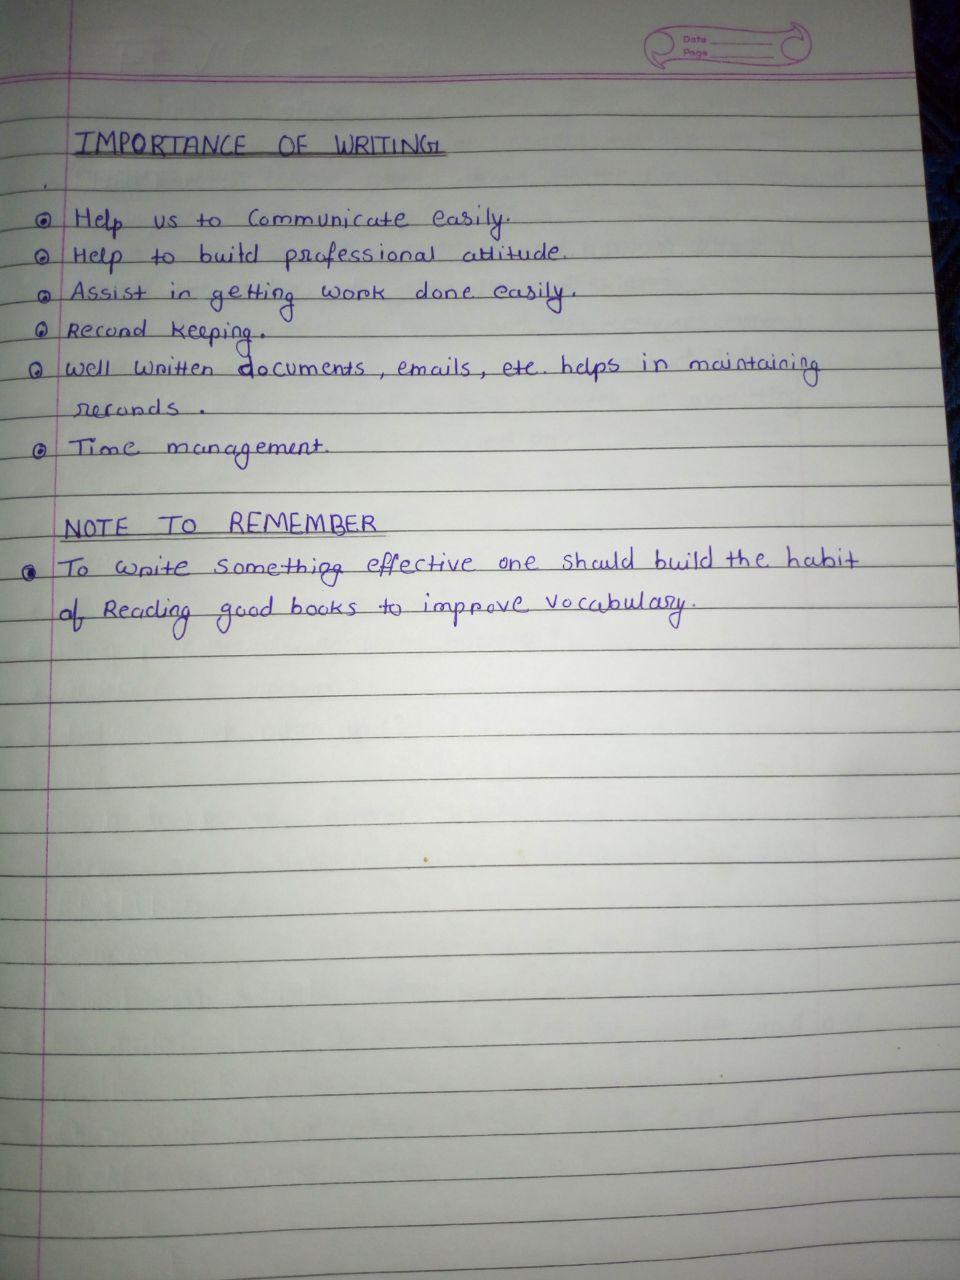 Date
Page
IMPORTANCE OF WRITING
Help us to Communicate easily.
Help to build professional attitude.
Assist in getting work done easily.
Record keeping.
Well written documents, emails, etc. helps in maintaining
records.
Time management.
NOTE TO REMEMBER
To write something effective one should build the habit
of Reading good books to improve vocabulary.